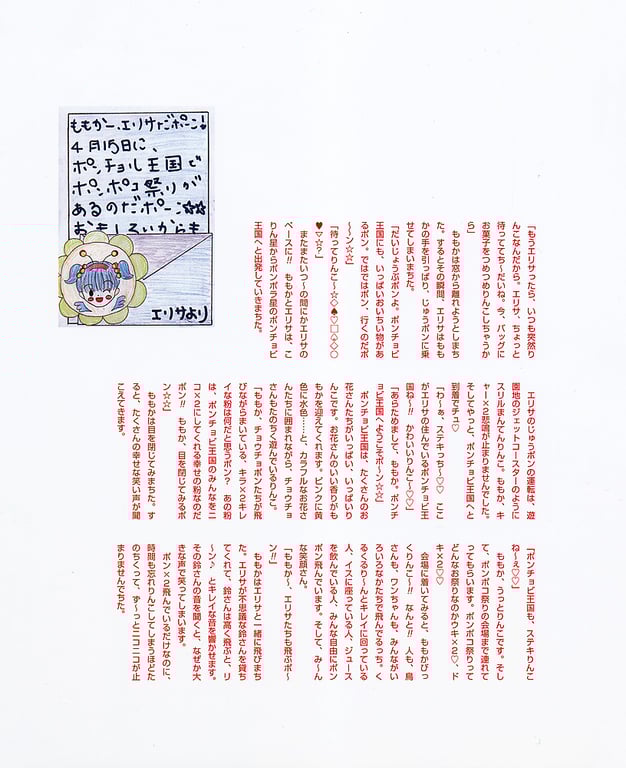 ももかー、エリサだポーン!
4月15日に、
ポンチョル王国で
ポンポコ祭りが
あるのだポーン☆☆
おもしろいからも
エリサより
「もうエリサったら、いつも突然り
んごなんだから。エリサ、ちょっと
待っててち〜だいね。今、バッグに
お菓子をつめつめりんこしちゃうか
ら」
　ももかは窓から離れようとしまち
た。するとその瞬間、エリサはもも
かの手を引っぱり、じゅうポンに乗
せてしまいまちた。
「だいじょうぶポンよ。ポンチョビ
王国にも、いっぱいおいちい物があ
るポン。ではではポン、行くのだポ
〜ン☆☆」
「待ってりんご〜☆◇♠♡□♤◇○
♥▽☆?」
　またまたいつ〜の間にかエリサの
ペースに!!　ももかとエリサは、こ
りん星からポンポラ星のポンチョビ
王国へと出発していきまちた。
　エリサのじゅうポンの運転は、遊
園地のジェットコースターのように
スリルまんてんりんこ。ももか、キ
ャー×2悲鳴が止まりませんでした。
そしてやっと、ポンチョビ王国へと
到着でチュ♡
「わ〜ぁ、ステキっち〜♡♡　ここ
がエリサの住んでいるポンチョビ王
国ね〜!!　かわいいりんこ〜♡♡」
「あらためまして、ももか。ポンチ
ョビ王国へようこそポ〜ン☆☆」
　ポンチョビ王国は、たくさんのお
花さんたちがいっぱい、いっぱいり
んこです。お花さんのいい香りがも
もかを迎えてくれます。ピンクに黄
色に水色……と、カラフルなお花さ
んたちに囲まれながら、チョウチョ
さんもたのちく遊んでいるりんこ。
「ももか、チョウチョポンたちが飛
びながらまいている、キラ×2キレ
イな粉は何だと思うポン?　あの粉
は、ポンチョビ王国のみんなをニ
コ×2にしてくれる幸せの粉なのだ
ポン!!　ももか、目を閉じてみるポ
ン☆☆」
　ももかは目を閉じてみまちた。す
ると、たくさんの幸せな笑い声が聞
こえてきます。
「ポンチョビ王国も、ステキりんこ
ね〜ぇ♡♡」
　ももか、うっとりんこです。そし
て、ポンポコ祭りの会場まで連れて
ってもらいます。ポンポコ祭りって
どんなお祭りなのかウキ×2♡、ド
キ×2♡♡
　会場に着いてみると、ももかびっ
くりんこ〜!!　なんと!!　人も、鳥
さんも、ワンちゃんも、みんながい
ろいろなかたちで飛んでるっち。く
るくるり〜んとキレイに回っている
人、イスに座っている人、ジュース
を飲んでいる人、みんな自由にポン
ポン飛んでいます。そして、み〜ん
な笑顔さん。
「ももか〜、エリサたちも飛ぶポ〜
ン!!」
　ももかはエリサと一緒に飛びまち
た。エリサが不思議な鈴さんを貸ち
てくれて、鈴さんは高く飛ぶと、リ
〜ン♪　とキレイな音を響かせます。
その鈴さんの音を聞くと、なぜか大
きな声で笑ってしまいます。
　ポン×2飛んでいるだけなのに、
時間も忘れりんこしてしまうほどた
のちくって、ず〜っとニコニコが止
まりませんでちた。